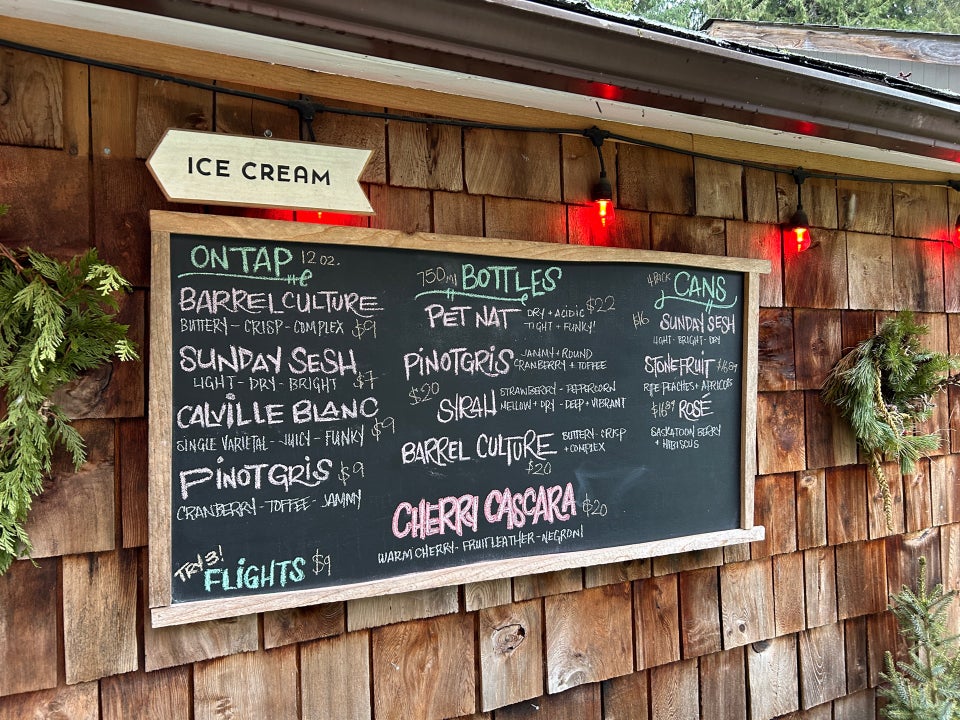 ICE CREAM
ON TAP 12 oz.
BARREL CULTURE
BUTTERY - CRISP - COMPLEX $9
SUNDAY SESH
LIGHT - DRY - BRIGHT $7
CALVILLE BLANC
SINGLE VARIETAL - JUICY - FUNKY $9
PINOT GRIS $9
CRANBERRY - TOFFEE - JAMMY
TRY 3!
FLIGHTS $9
750ml BOTTLES
PET NAT DRY + ACIDIC $22
TIGHT + FUNKY!
PINOT GRIS JAMMY + ROUND
CRANBERRY + TOFFEE
$20
SIRAH STRAWBERRY - PEPPERCORN
MELLOW + DRY - DEEP + VIBRANT
BARREL CULTURE BUTTERY - CRISP
+ COMPLEX
$20
CHERRI CASCARA $20
WARM CHERRY - FRUIT LEATHER - NEGRONI
CANS
$16 SUNDAY SESH
LIGHT - BRIGHT - DRY
STONEFRUIT
RIPE PEACHES + APRICOTS
ROSÉ
SASKATOON BERRY
+ HIBISCUS